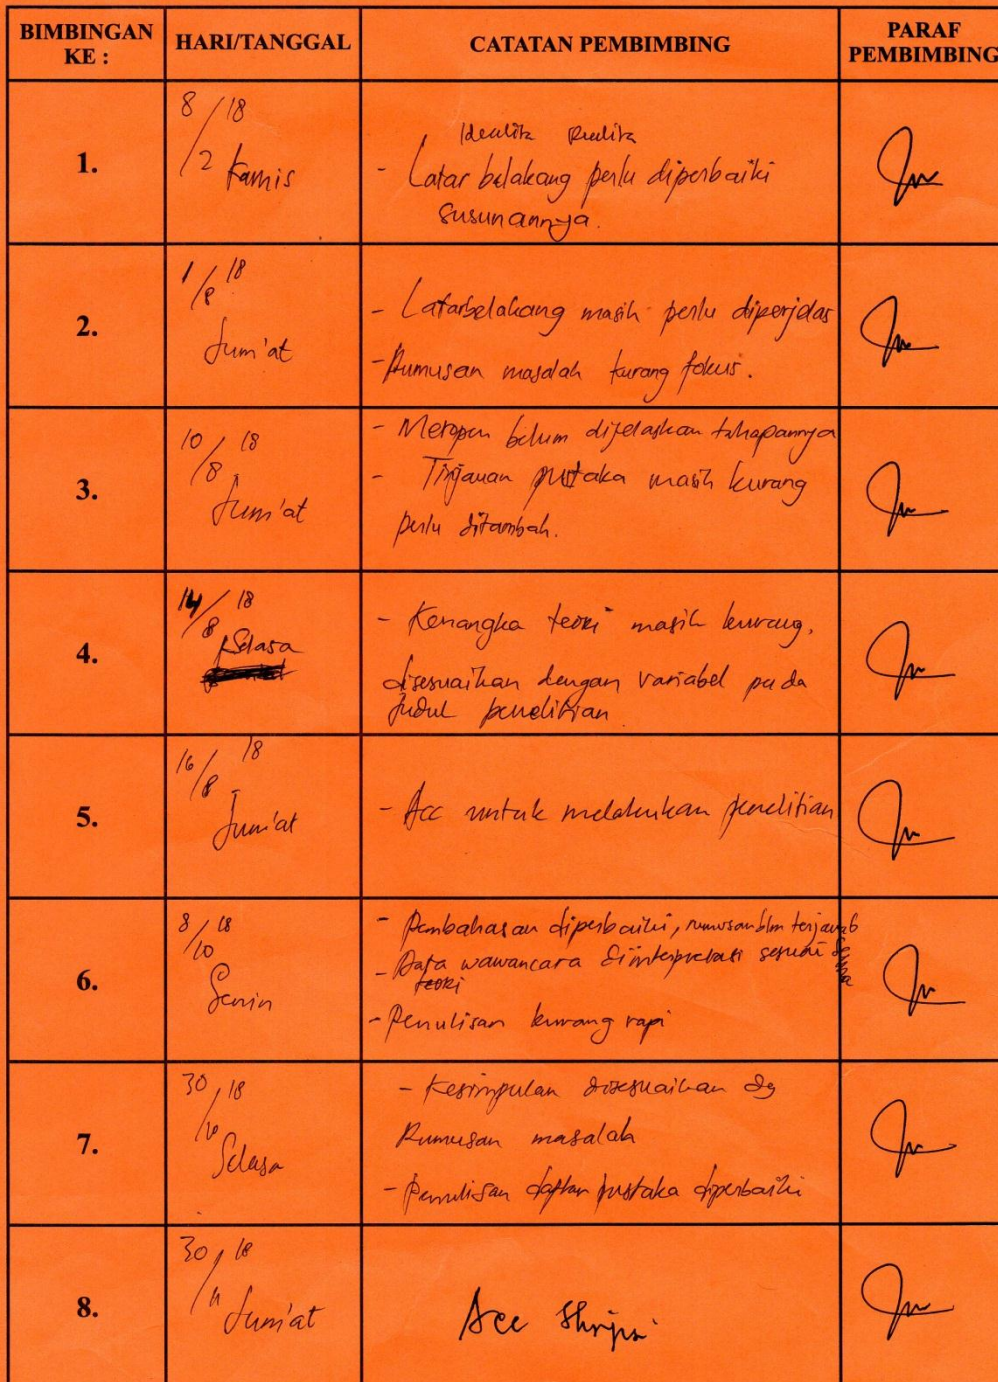 BIMBINGAN KE : HARI/TANGGAL CATATAN PEMBIMBING PARAF PEMBIMBING
1.
8/2 18
Kamis
Idealita Realita
- Latar belakang perlu diperbaiki
susunannya.
2.
1/8 18
Jum'at
- Latarbelakang masih perlu diperjelas
- Rumusan masalah kurang fokus.
3.
10/8 18
Jum'at
- Metopen belum dijelaskan tahapannya
- Tinjauan pustaka masih kurang
perlu ditambah.
4.
14/8 18
Selasa
- Kerangka teori masih kurang,
disesuaikan dengan variabel pada
judul penelitian
5.
16/8 18
Jum'at
- Acc untuk melakukan penelitian
6.
8/10 18
Senin
- Pembahasan diperbaiki, rumusan blm terjawab
- Data wawancara diinterpretasi sesuai
teori
- Penulisan kurang rapi
7.
30/10 18
Selasa
- Kesimpulan disesuaikan dg
Rumusan masalah
- Penulisan daftar pustaka diperbaiki
8.
30/11 18
Jum'at
Acc Skripsi